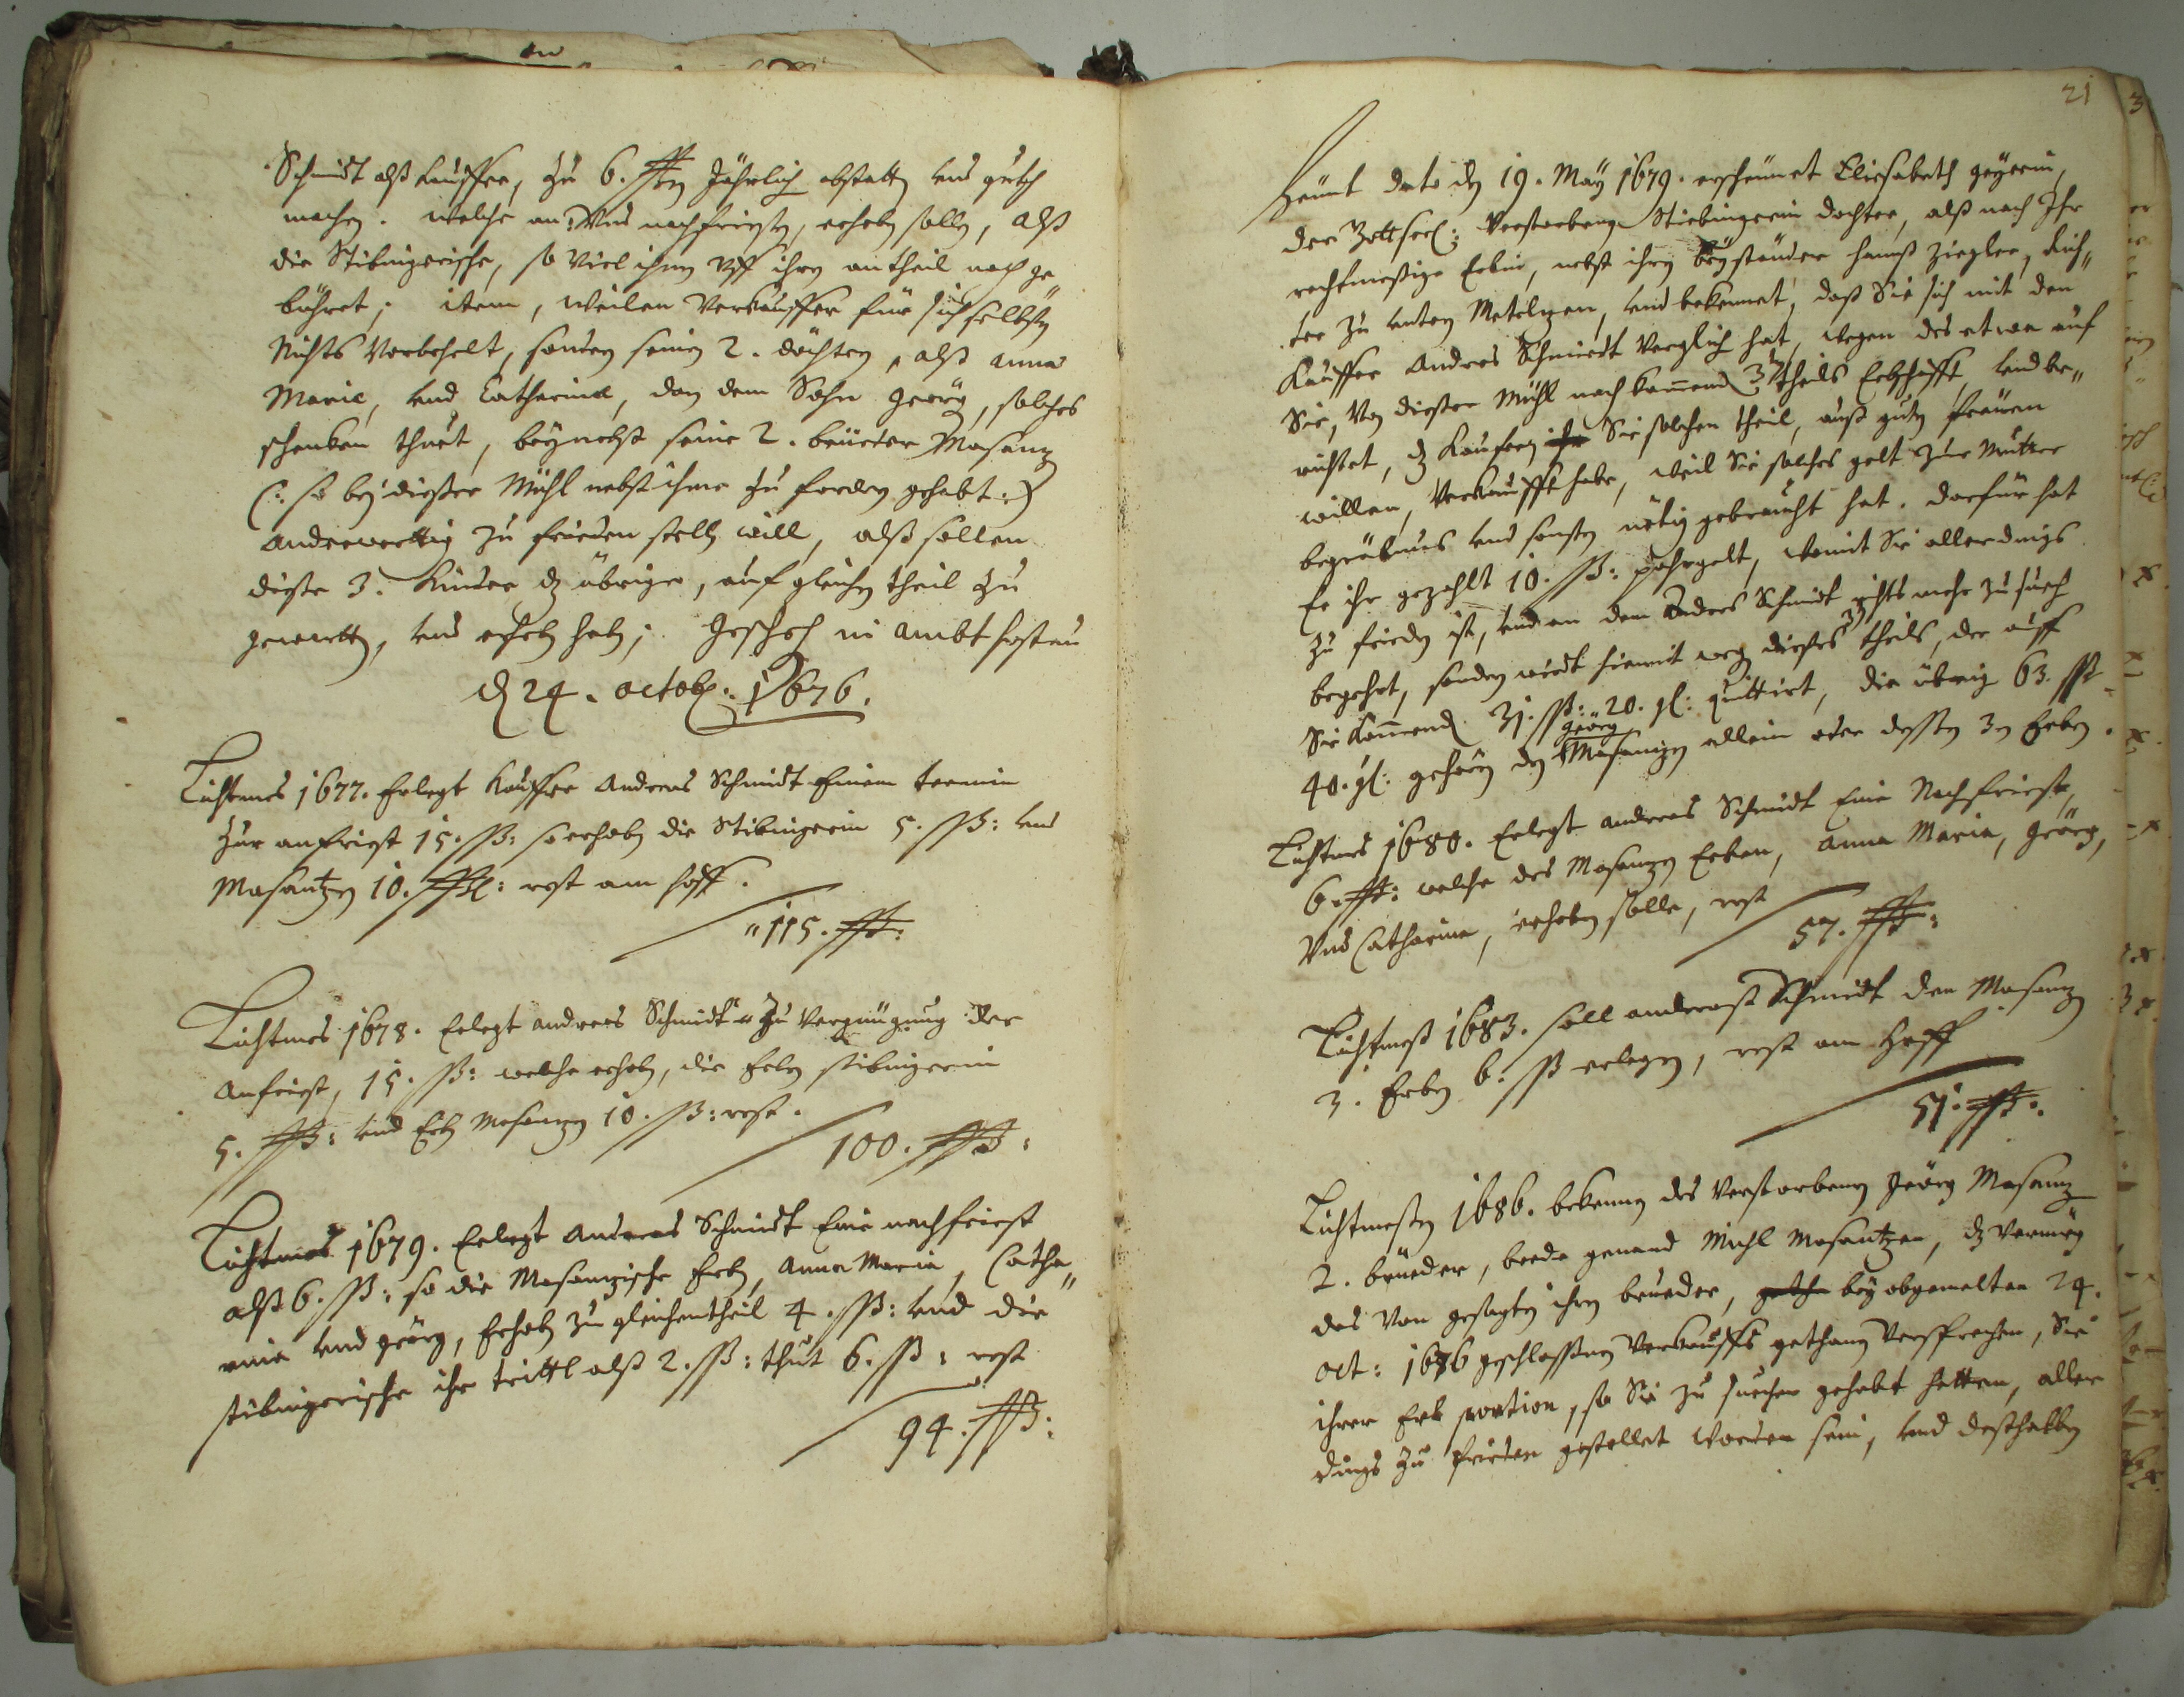 Schmidt alß Kauffer, zu 6. ßß Jährlich abstatten und guth
machen. Welche an: Und nachfristen, erheben sollen, alß
die Stibingerische, so Viel ihnen Uff ihren antheil nach ge„
bühret; item, Weilen Verkauffer für sich selbsten
Nichts Vorbehelt, sondern seinen 2. döchtern, alß Anna
Maria, und Catharina, dan dem Sohn Geörg, solches
schenken thuet, beynebst seine 2. brüeder Masantz
(: so bey dießer Mühl nebst ihme zu fordern gehabt :)
anderwerttig zu frieden stelln will, alß sollen
dieße 3. Kinder dz übrige, auf gleichen theil zu
gewartten, und erheben haben; Geschehen in Ambt Hostau
den 24. octob: 1676.
Lichtmes 1677. Erlegt Kauffer Andreas Schmidt Einem termin
zur anfrist 15. ßß: so erheben die Stibingerin 5. ßß: und
Masantzen 10. ßß: rest am Hoff.
115. ßß:
Lichtmes 1678. Erlegt Andreas Schmidt zu Vergnügung der
Anfrist, 15. ßß: welche erheben, die Erben Stibingerin
5. ßß: und Erben Masantzen 10. ßß: rest.
100. ßß:
Lichtmes 1679. Erlegt Andreas Schmidt Eine nachfrist
alß 6. ßß: so die Masanzische Erben, Anna Maria, Catha„
rina und Geörg, Erheben zu gleichentheil 4. ßß: und die
stibingerische ihr trittl alß 2. ßß: thut 6. ßß: rest
94. ßß:
21
Heünt dato den 19. Maÿ 1679. erscheinet Eliesabeth geyerin,
der Gottseel: Verstorbenen Stiebingerin dochter, alß nach Ihr
rechtmeßige Erbin, nebst ihren beyständer Hannß Ziegler, Rich„
ter zu untern Metelzen, und bekennet, daß Sie sich mit den
Kauffer Andres Schmiedt Verglich hat, wegen des etwa auf
Sie, Von dießer Mühl nach komend 3ten theils Erbschafft, und be„
richtet, dz Kauffern ihr Sie solchen theil, auß guten freüen
willen, Verkaufft habe, weil Sie solches gelt zur Mutter
begräbnus und sonsten nötig gebraucht hat. darfür hat
Er ihr gezahlt 10. ßß: pahrgelt, womit Sie allerdings
zu frieden ist, und an den Andres Schmidt nichts mehr zu such
begehrt, sondern wiedt hiemit wegen dießes 3ten theils, der auff
Sie Komend 31. ßß: 20. gl: quittirt, die übrig 63. ßß
Geörg
40. gl: gehören den Masanzen allein oder deßen 3en Erben.
Lichtmes 1680. Erlegt Andreas Schmidt Eine Nachfriest,
6. ßß: welche des Masanzen Erben, Anna Maria, Geörg,
Und Catharina, erheben solle, rest
57. ßß:
Lichtmeß 1683. soll Andreas Schmidt den Masanz
3. Erben 6. ßß erlegen, rest am Hoff
51. ßß:
Lichtmeßen 1686. bekennen des Verstorbenen Geörg Masanz
2. brüeder, beede genand Michl Masantzen, dz Vermög
des Von gesagten ihren brueder, bey obgemelten 24.
oct: 1676 geschloßenen Verkauffs gethanen Versprechen, Sie
ihrer Erb portion, so Sie zu suechen gehabt hetten, aller
dings zu frieden gestellet worden sein, und deßhalben